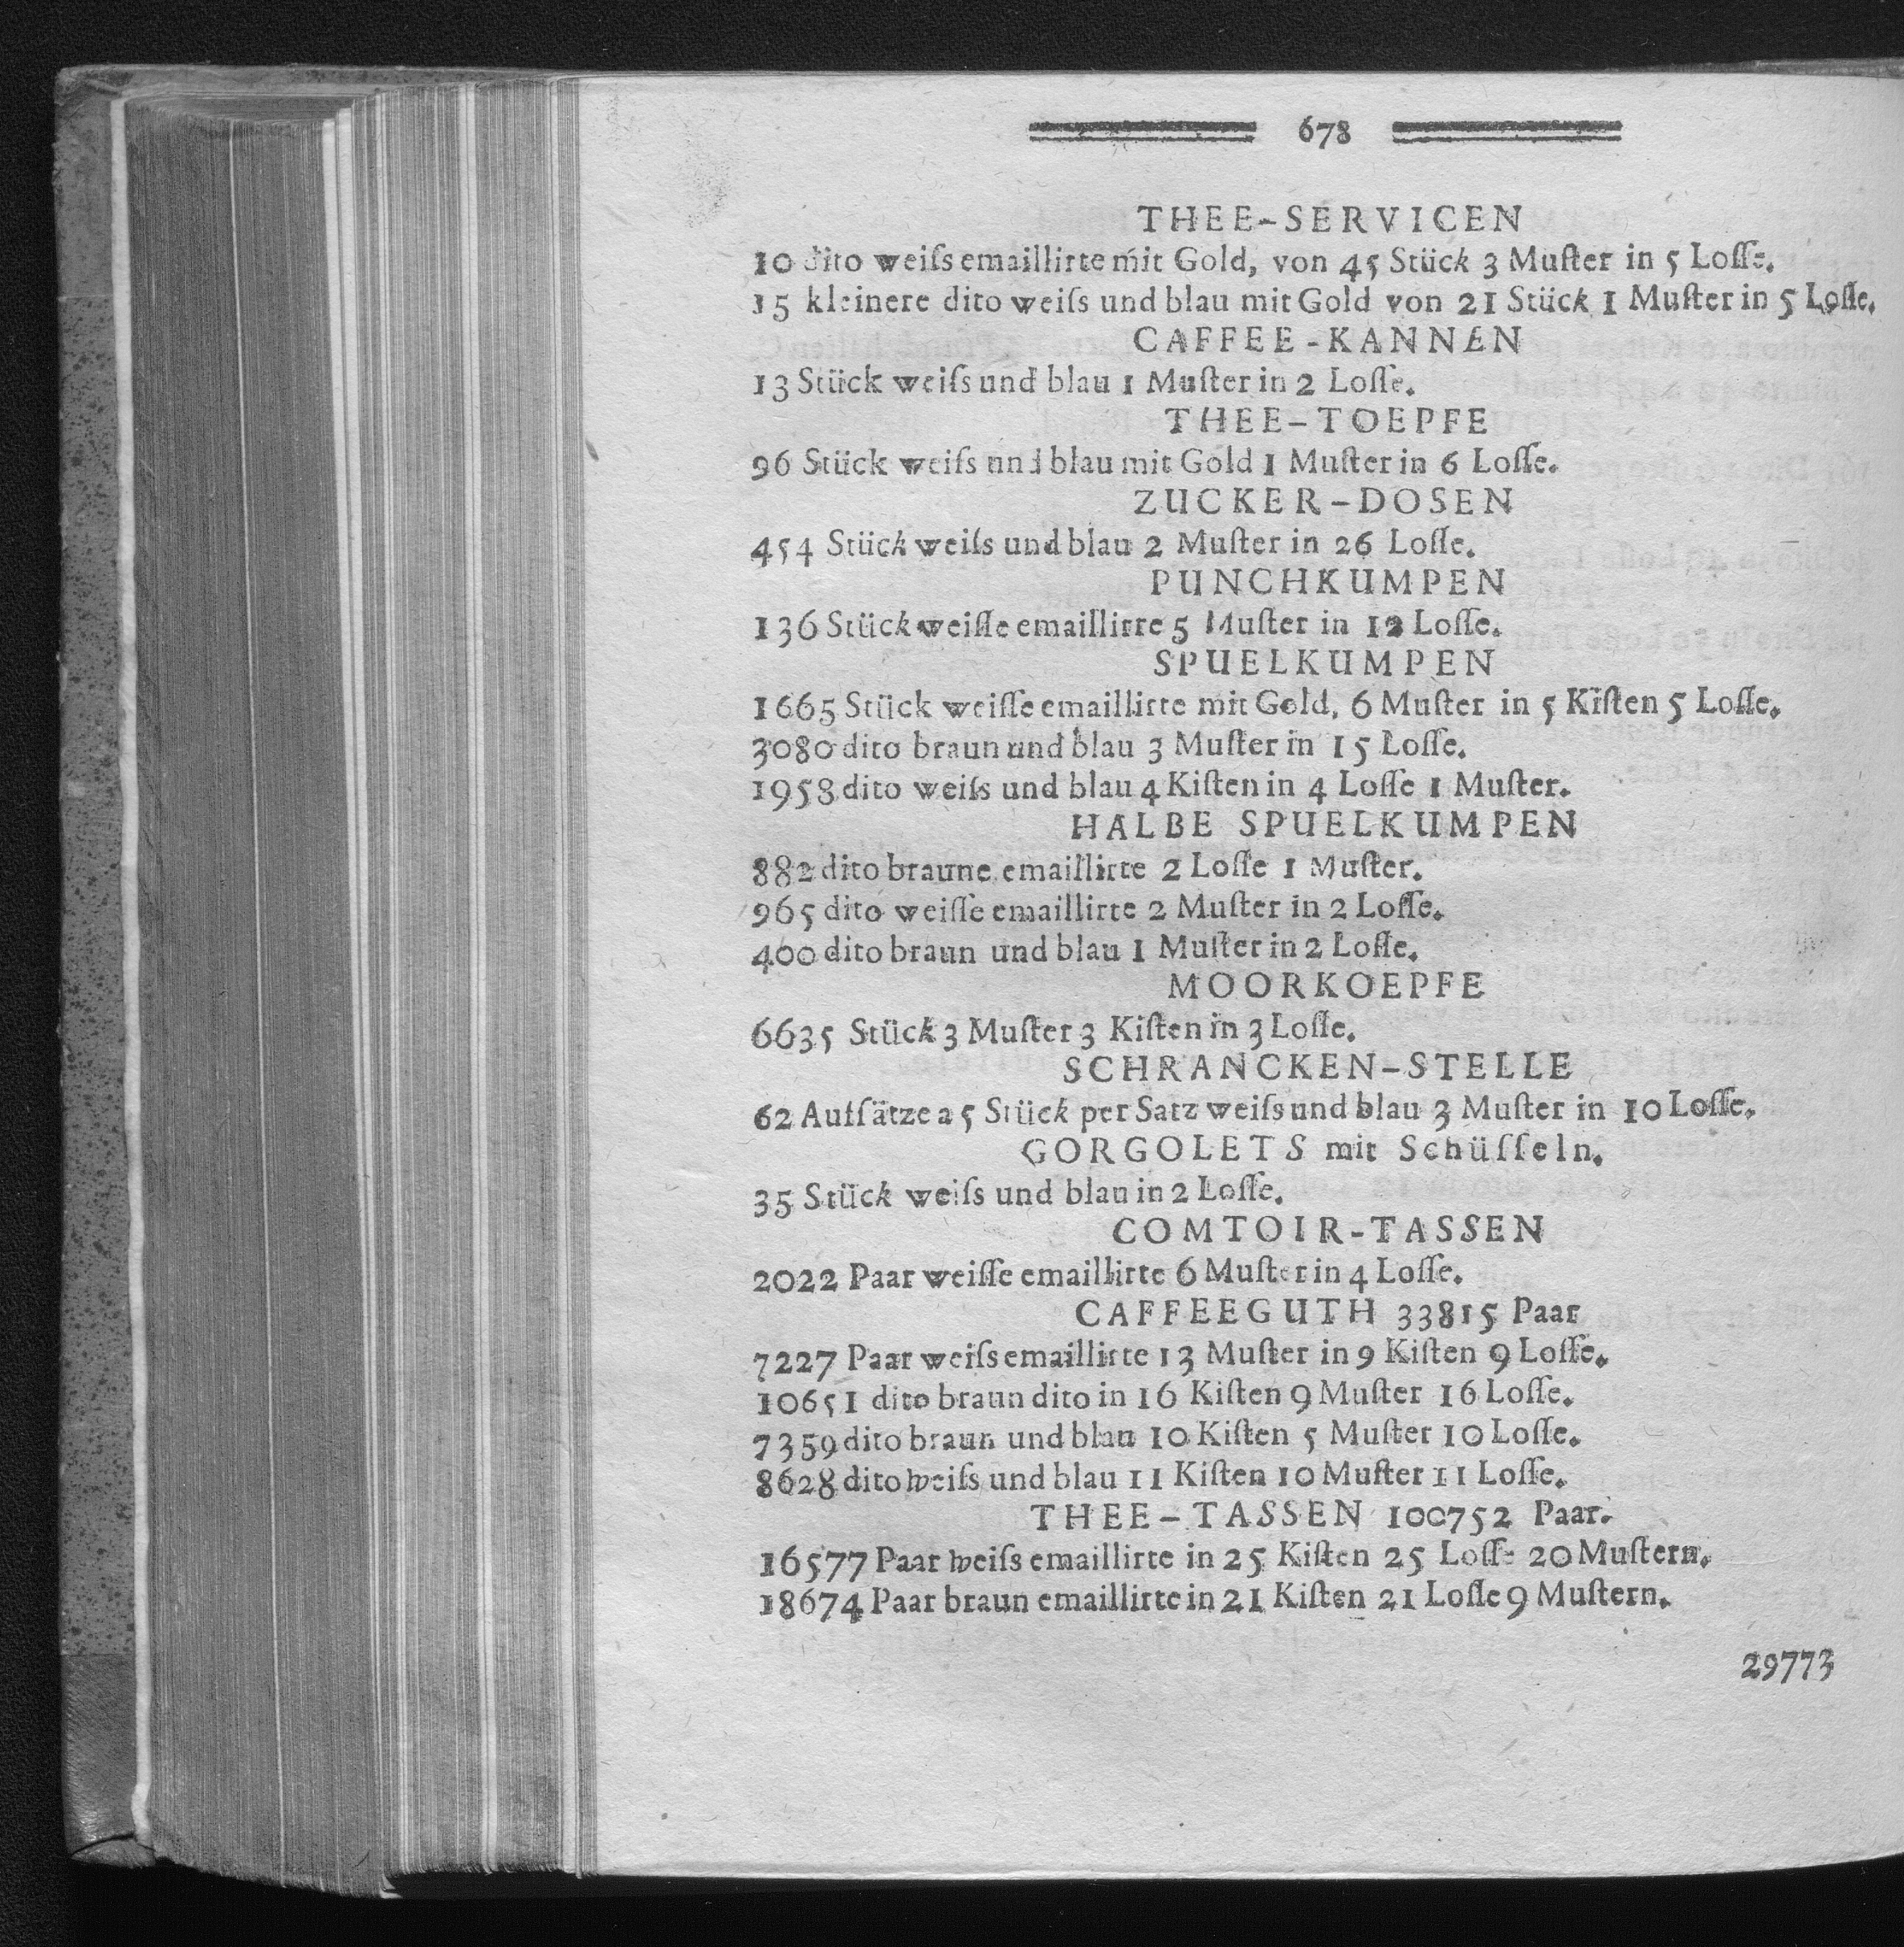 678
THEE-SERVICEN
10 dito weiſs emaillirte mit Gold, von 45 Stück 3 Muſter in 5 Loſſe.
15 kleinere dito weiſs und blau mit Gold von 21 Stück 1 Muſter in 5 Loſſe.
CAFFEE-KANNEN
13 Stück weiſs und blau 1 Muſter in 2 Loſſe.
THEE-TOEPFE
96 Stück weiſs und blau mit Gold 1 Muſter in 6 Loſſe.
ZUCKER-DOSEN
454 Stück weiſs und blau 2 Muſter in 26 Loſſe.
PUNCHKUMPEN
136 Stück weiſſe emaillirte 5 Muſter in 12 Loſſe.
SPUELKUMPEN
1665 Stück weiſſe emaillirte mit Gold, 6 Muſter in 5 Kiſten 5 Loſſe.
3080 dito braun und blau 3 Muſter in 15 Loſſe.
1958 dito weiſs und blau 4 Kiſten in 4 Loſſe 1 Muſter.
HALBE SPUELKUMPEN
882 dito braune emaillirte 2 Loſſe 1 Muſter.
965 dito weiſſe emaillirte 2 Muſter in 2 Loſſe.
400 dito braun und blau 1 Muſter in 2 Loſſe.
MOORKOEPFE
6635 Stück 3 Muſter 3 Kiſten in 3 Loſſe.
SCHRANCKEN-STELLE
62 Aufſätze a 5 Stück per Satz weiſs und blau 3 Muſter in 10 Loſſe.
GORGOLETS mit Schüſſeln.
35 Stück weiſs und blau in 2 Loſſe.
COMTOIR-TASSEN
2022 Paar weiſſe emaillirte 6 Muſter in 4 Loſſe.
CAFFEEGUTH 33815 Paar
7227 Paar weiſs emaillirte 13 Muſter in 9 Kiſten 9 Loſſe.
10651 dito braun dito in 16 Kiſten 9 Muſter 16 Loſſe.
7359 dito braun und blau 10 Kiſten 5 Muſter 10 Loſſe.
8628 dito weiſs und blau 11 Kiſten 10 Muſter 11 Loſſe.
THEE-TASSEN 100752 Paar.
16577 Paar weiſs emaillirte in 25 Kiſten 25 Loſſe 20 Muſtern.
18674 Paar braun emaillirte in 21 Kiſten 21 Loſſe 9 Muſtern.
29773